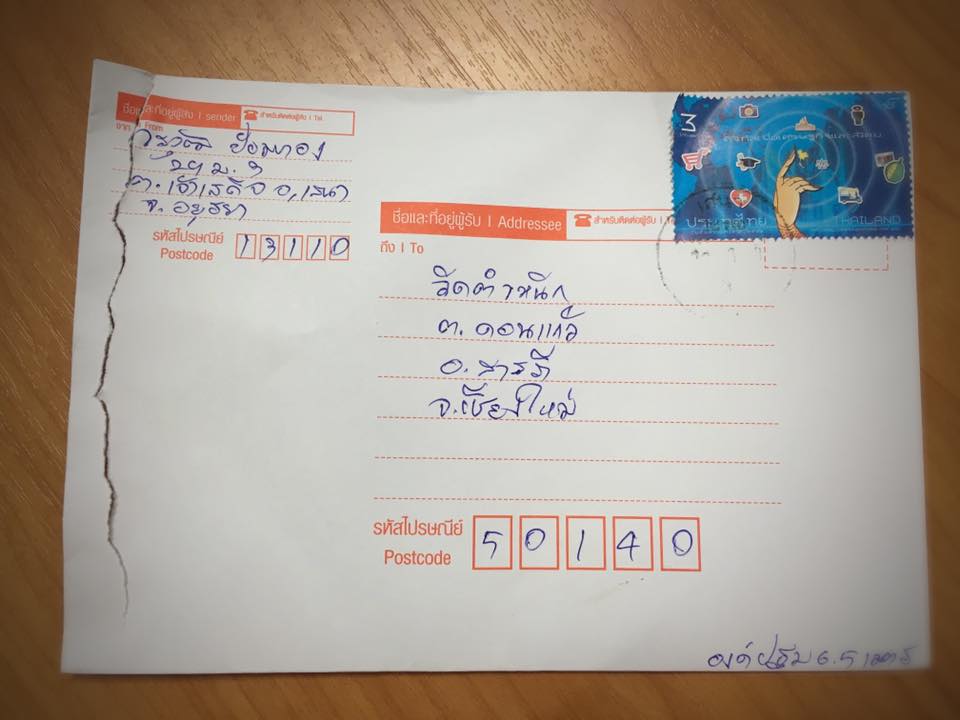 ชื่อและที่อยู่ผู้ส่ง | sender
สำหรับติดต่อผู้ส่ง | Tel.
จาก | From
ม. 9
ต. เจ้าเสด็จ อ. เสนา
จ. อยุธยา
รหัสไปรษณีย์
Postcode
13110
3
ประเทศไทย
THAILAND
ชื่อและที่อยู่ผู้รับ | Addressee
สำหรับติดต่อผู้รับ |
ถึง | To
วัดตำหนัก
ต. ดอนแก้ว
อ. สารภี
จ. เชียงใหม่
รหัสไปรษณีย์
Postcode
50140
องค์ปฐม 6.5 เมตร